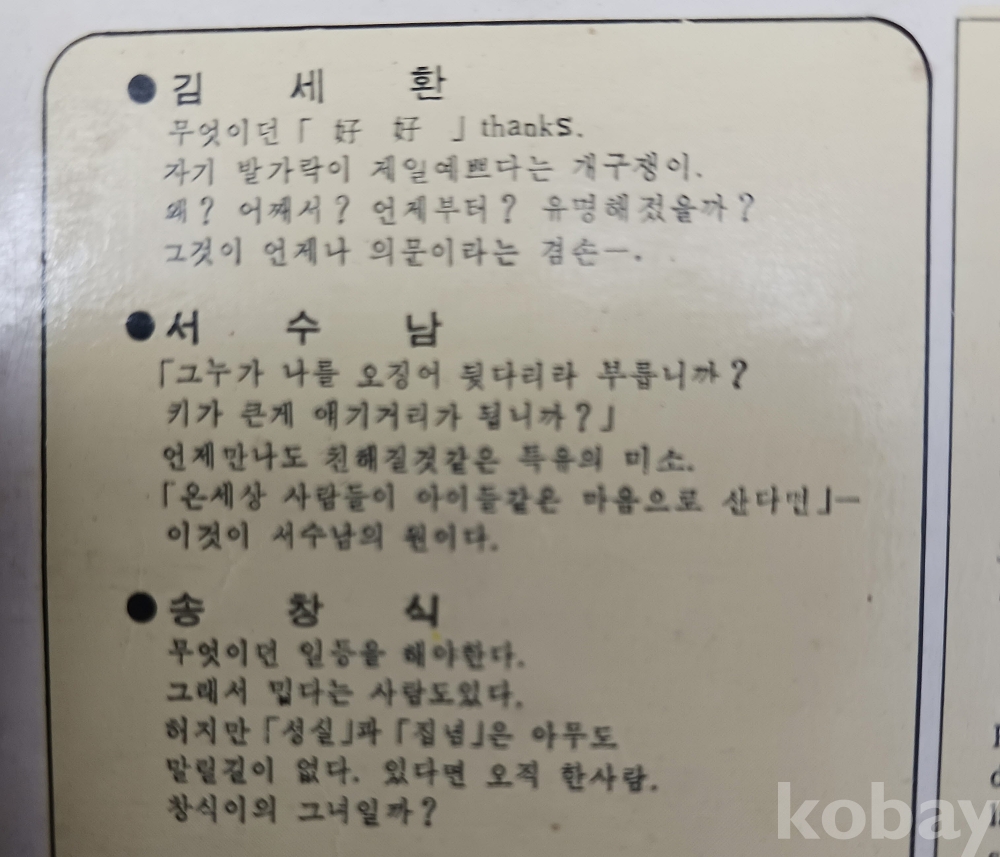 ●김 세 환
무엇이던「好 好」thanks.
자기 발가락이 제일예쁘다는 개구쟁이.
왜? 어째서? 언제부터? 유명해졌을까?
그것이 언제나 의문이라는 겸손―.
●서 수 남
「그누가 나를 오징어 뒷다리라 부릅니까?
키가 큰게 얘기거리가 됩니까?」
언제만나도 친해질것같은 특유의 미소.
「온세상 사람들이 아이들같은 마음으로 산다면」―
이것이 서수남의 원이다.
●송 창 식
무엇이던 일등을 해야한다.
그래서 밉다는 사람도있다.
허지만「성실」과「집념」은 아무도
말릴길이 없다. 있다면 오직 한사람.
창식이의 그녀일까?
kobay